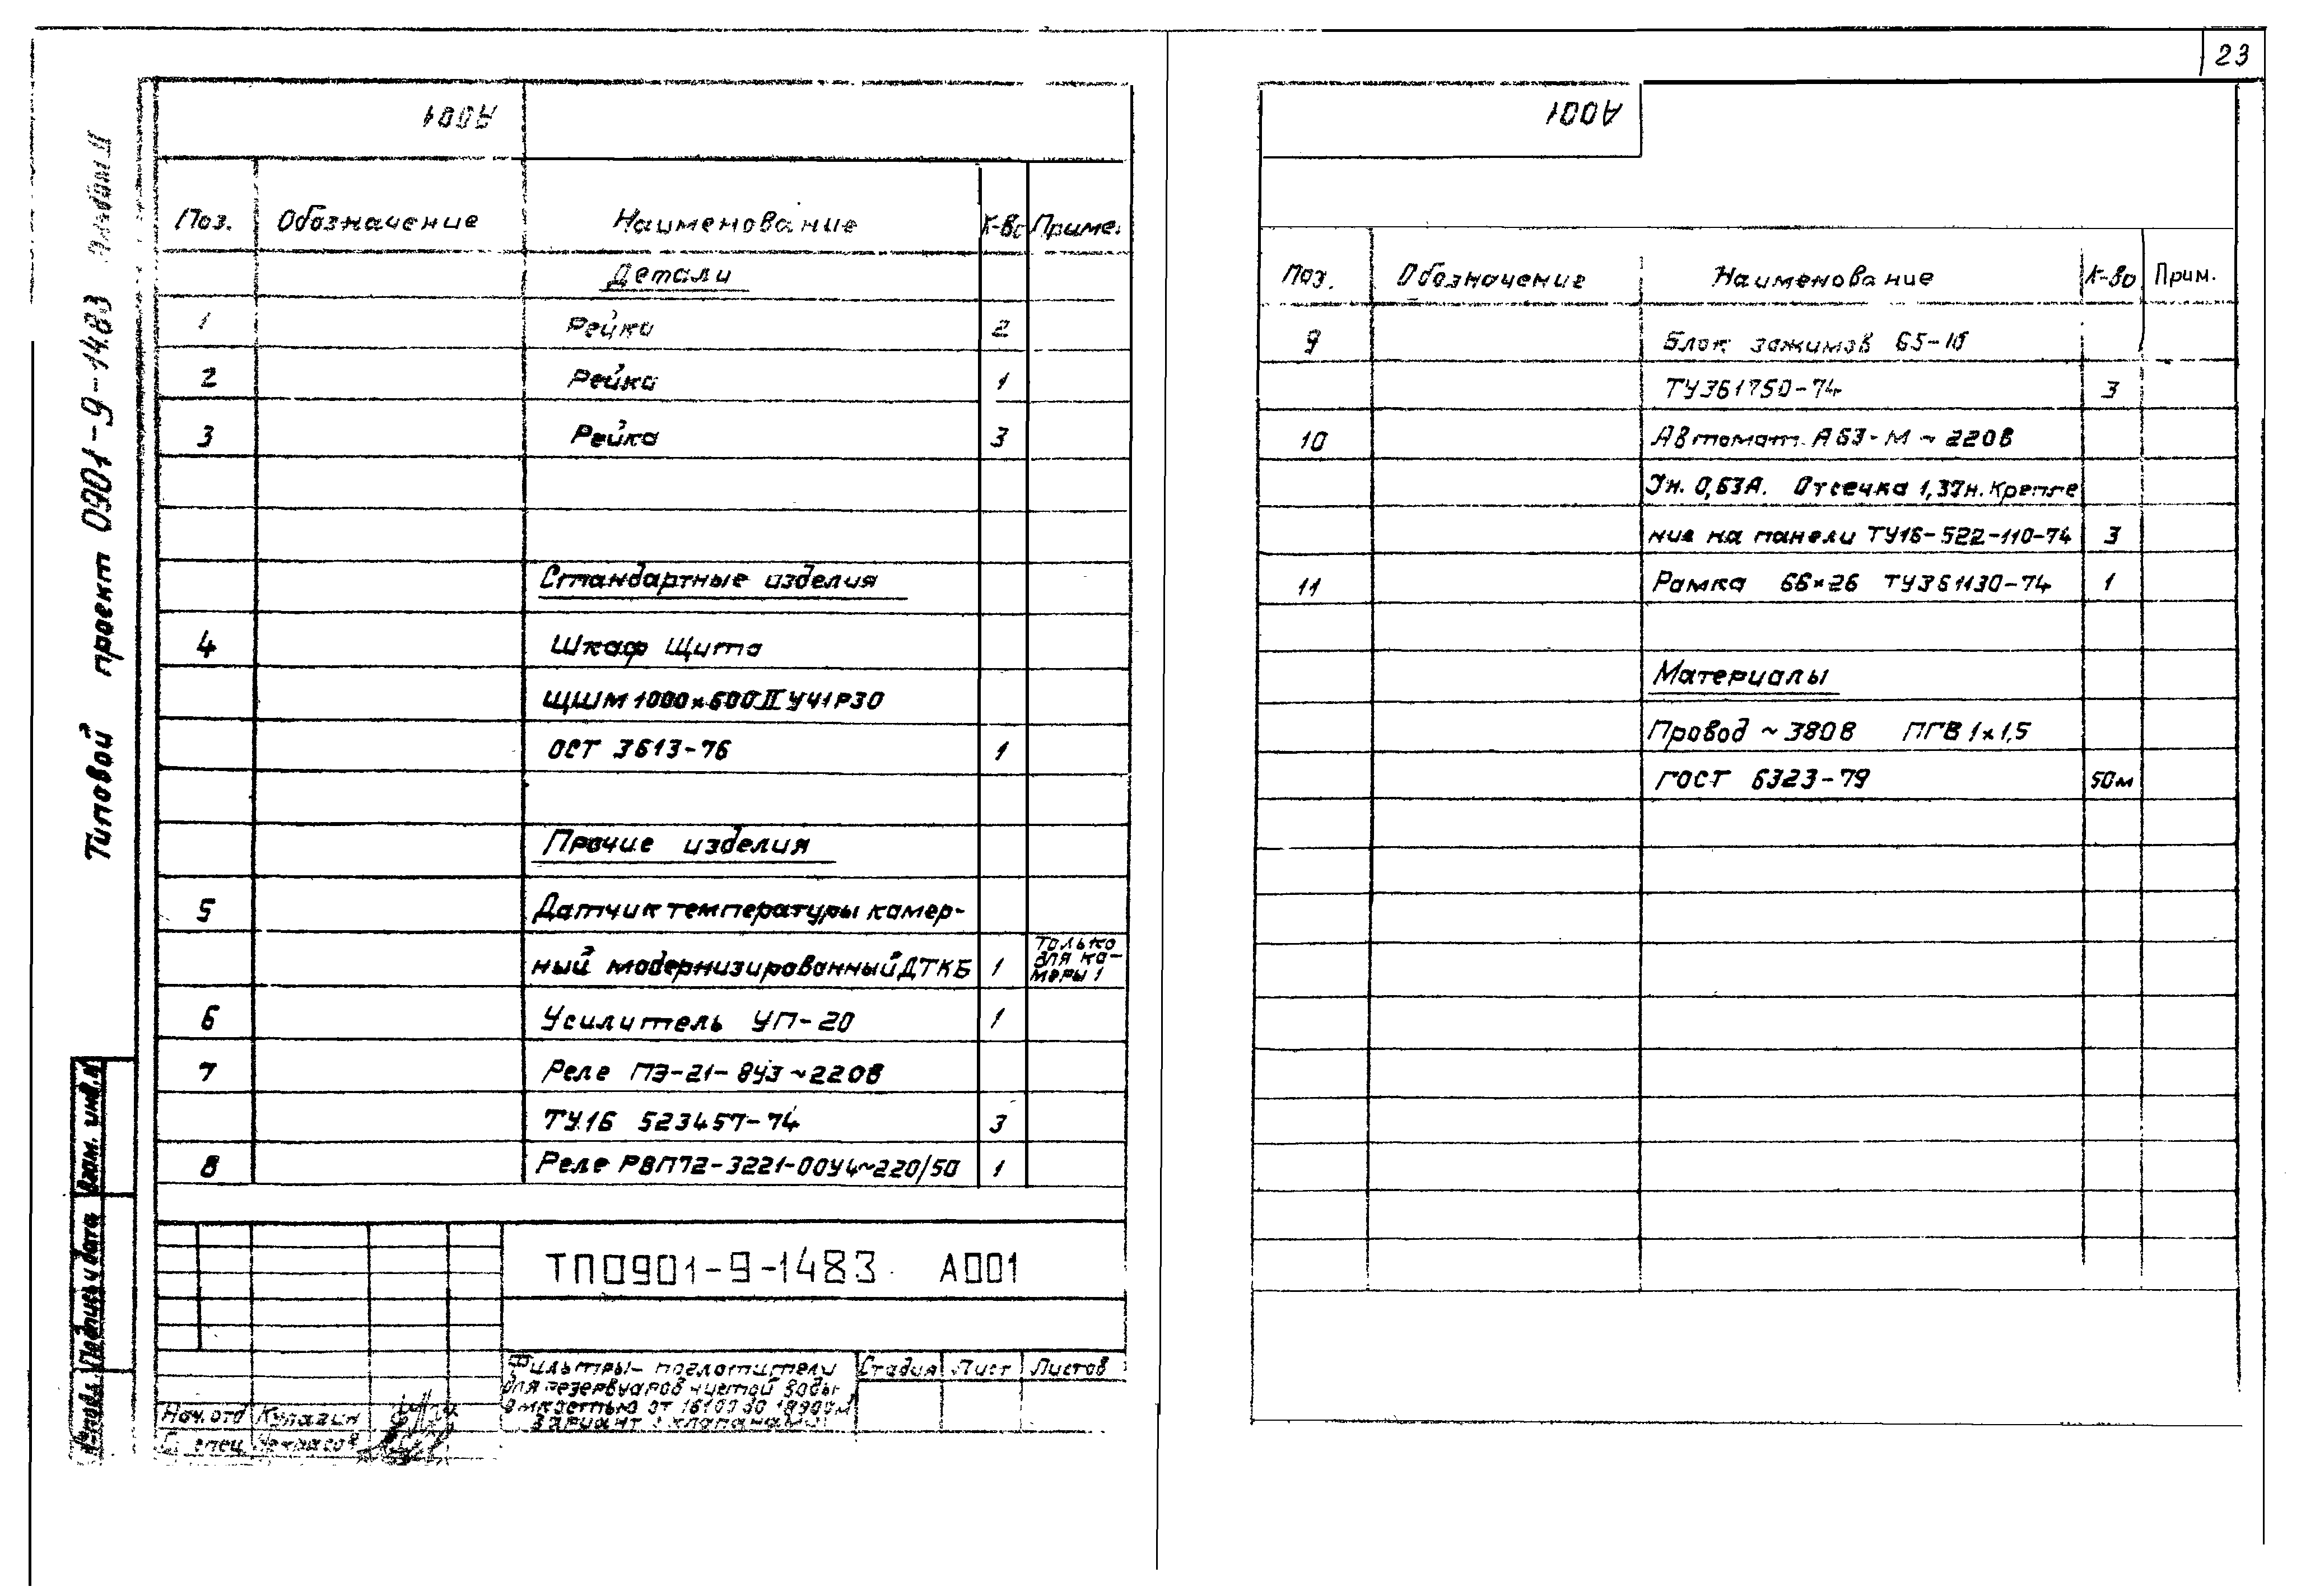 23
А001
Поз. Обозначение Наименование К-во Приме.
Детали
1 Рейка 2
2 Рейка 1
3 Рейка 3
Стандартные изделия
4 Шкаф Щита
ЩШМ 1000×600 II У41Р30
ОСТ 3613-76 1
Прочие изделия
5 Датчик температуры камер-
ный модернизированный ДТКБ 1 только для ка- меры 1
6 Усилитель УП-20 1
7 Реле ПЭ-21-8У3 ~220В
ТУ.16 523457-74 3
8 Реле РВП72-3221-00У4~220/50 1
ТП0901-9-14.83 А001
Фильтры-поглотители Стадия Лист Листов
для резервуаров чистой воды
емкостью от
вариант с клапанами
Нач.отд Кулагин
спец Некрасов
Типовой проект 0901-9-14.83 Альбом II
Взам. инв.
Подпись и дата
А001
Поз. Обозначение Наименование К-во Прим.
9 Блок зажимов БЗ-10
ТУ361750-74 3
10 Автомат. А63-М ~ 220В
Iн. 0,63А. Отсечка 1,3Iн. Крепле
ние на панели ТУ16-522-110-74 3
11 Рамка 66×26 ТУ361130-74 1
Материалы
Провод ~ 380В ПГВ 1×1,5
ГОСТ 6323-79 50м